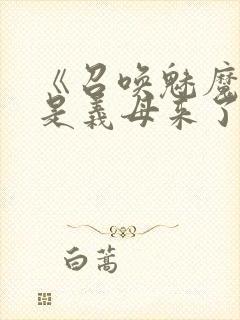 《召唤魅魔
是义母来了
白蒿